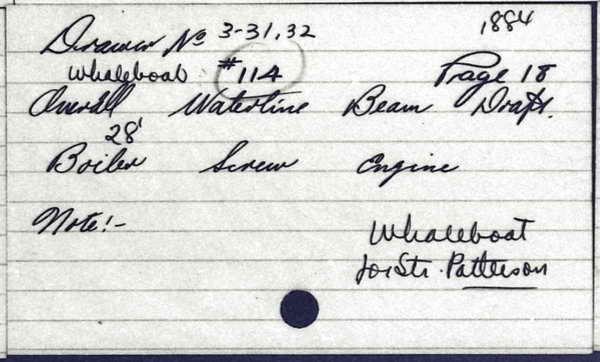 1884
Drawer No 3-31,32
Whaleboat #114 Page 18
Overall Waterline Beam Draft.
28'
Boiler Screw Engine
Note!-
Whaleboat
for Str. Patterson